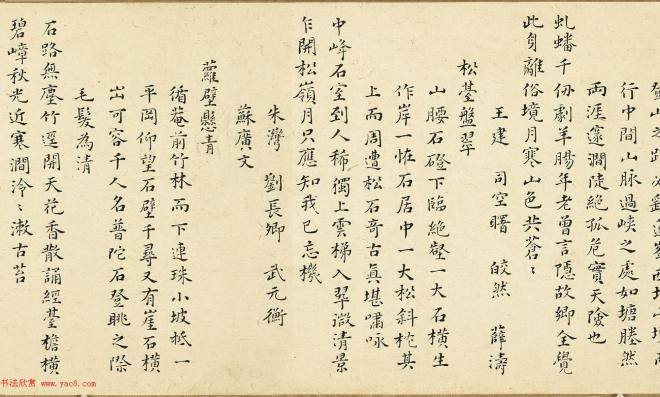 登山之路必
行中間山脉過峽之處如塘塍然
兩涯邃澗陡絶孤危實天險也
虬蟠千仞劇羊腸年老曾言隱故鄉全覺
此身離俗境月寒山色共蒼〻
王建 司空曙 皎然 薛濤
松臺盤翠
山腰石磴下臨絶壑一大石橫生
作岸一怪石居中一大松斜枕其
上而周遭松石奇古真堪嘯咏
中峰石室到人稀獨上雲梯入翠微清景
乍開松嶺月只應知我已忘機
朱灣 劉長卿 武元衡
蘇廣文
蘿壁懸青
循菴前竹林而下連珠小坡抵一
平岡仰望石壁千尋又有崖石橫
出可容千人名普陀石登眺之際
毛髮為清
石路無塵竹逕開天花香散誦經臺檐橫
碧嶂秋光近寒澗泠〻漱古苔
书法欣赏
www.yac8.com